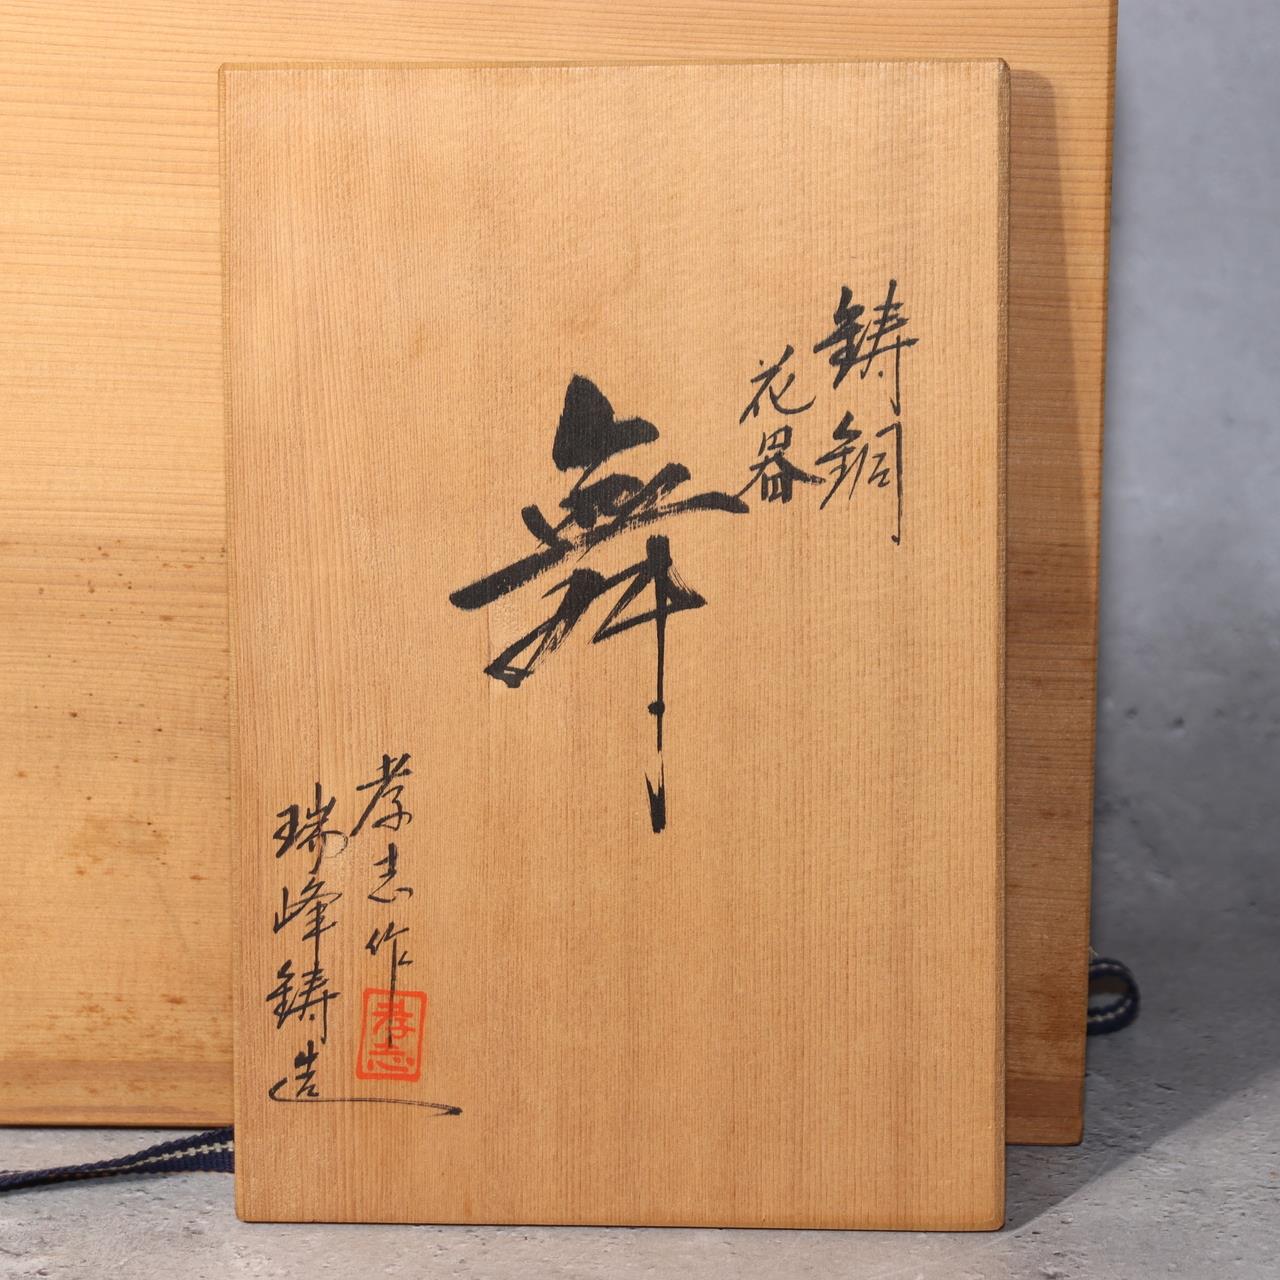 鋳銅
花器
舞
孝志作
孝志
瑞峰鋳造